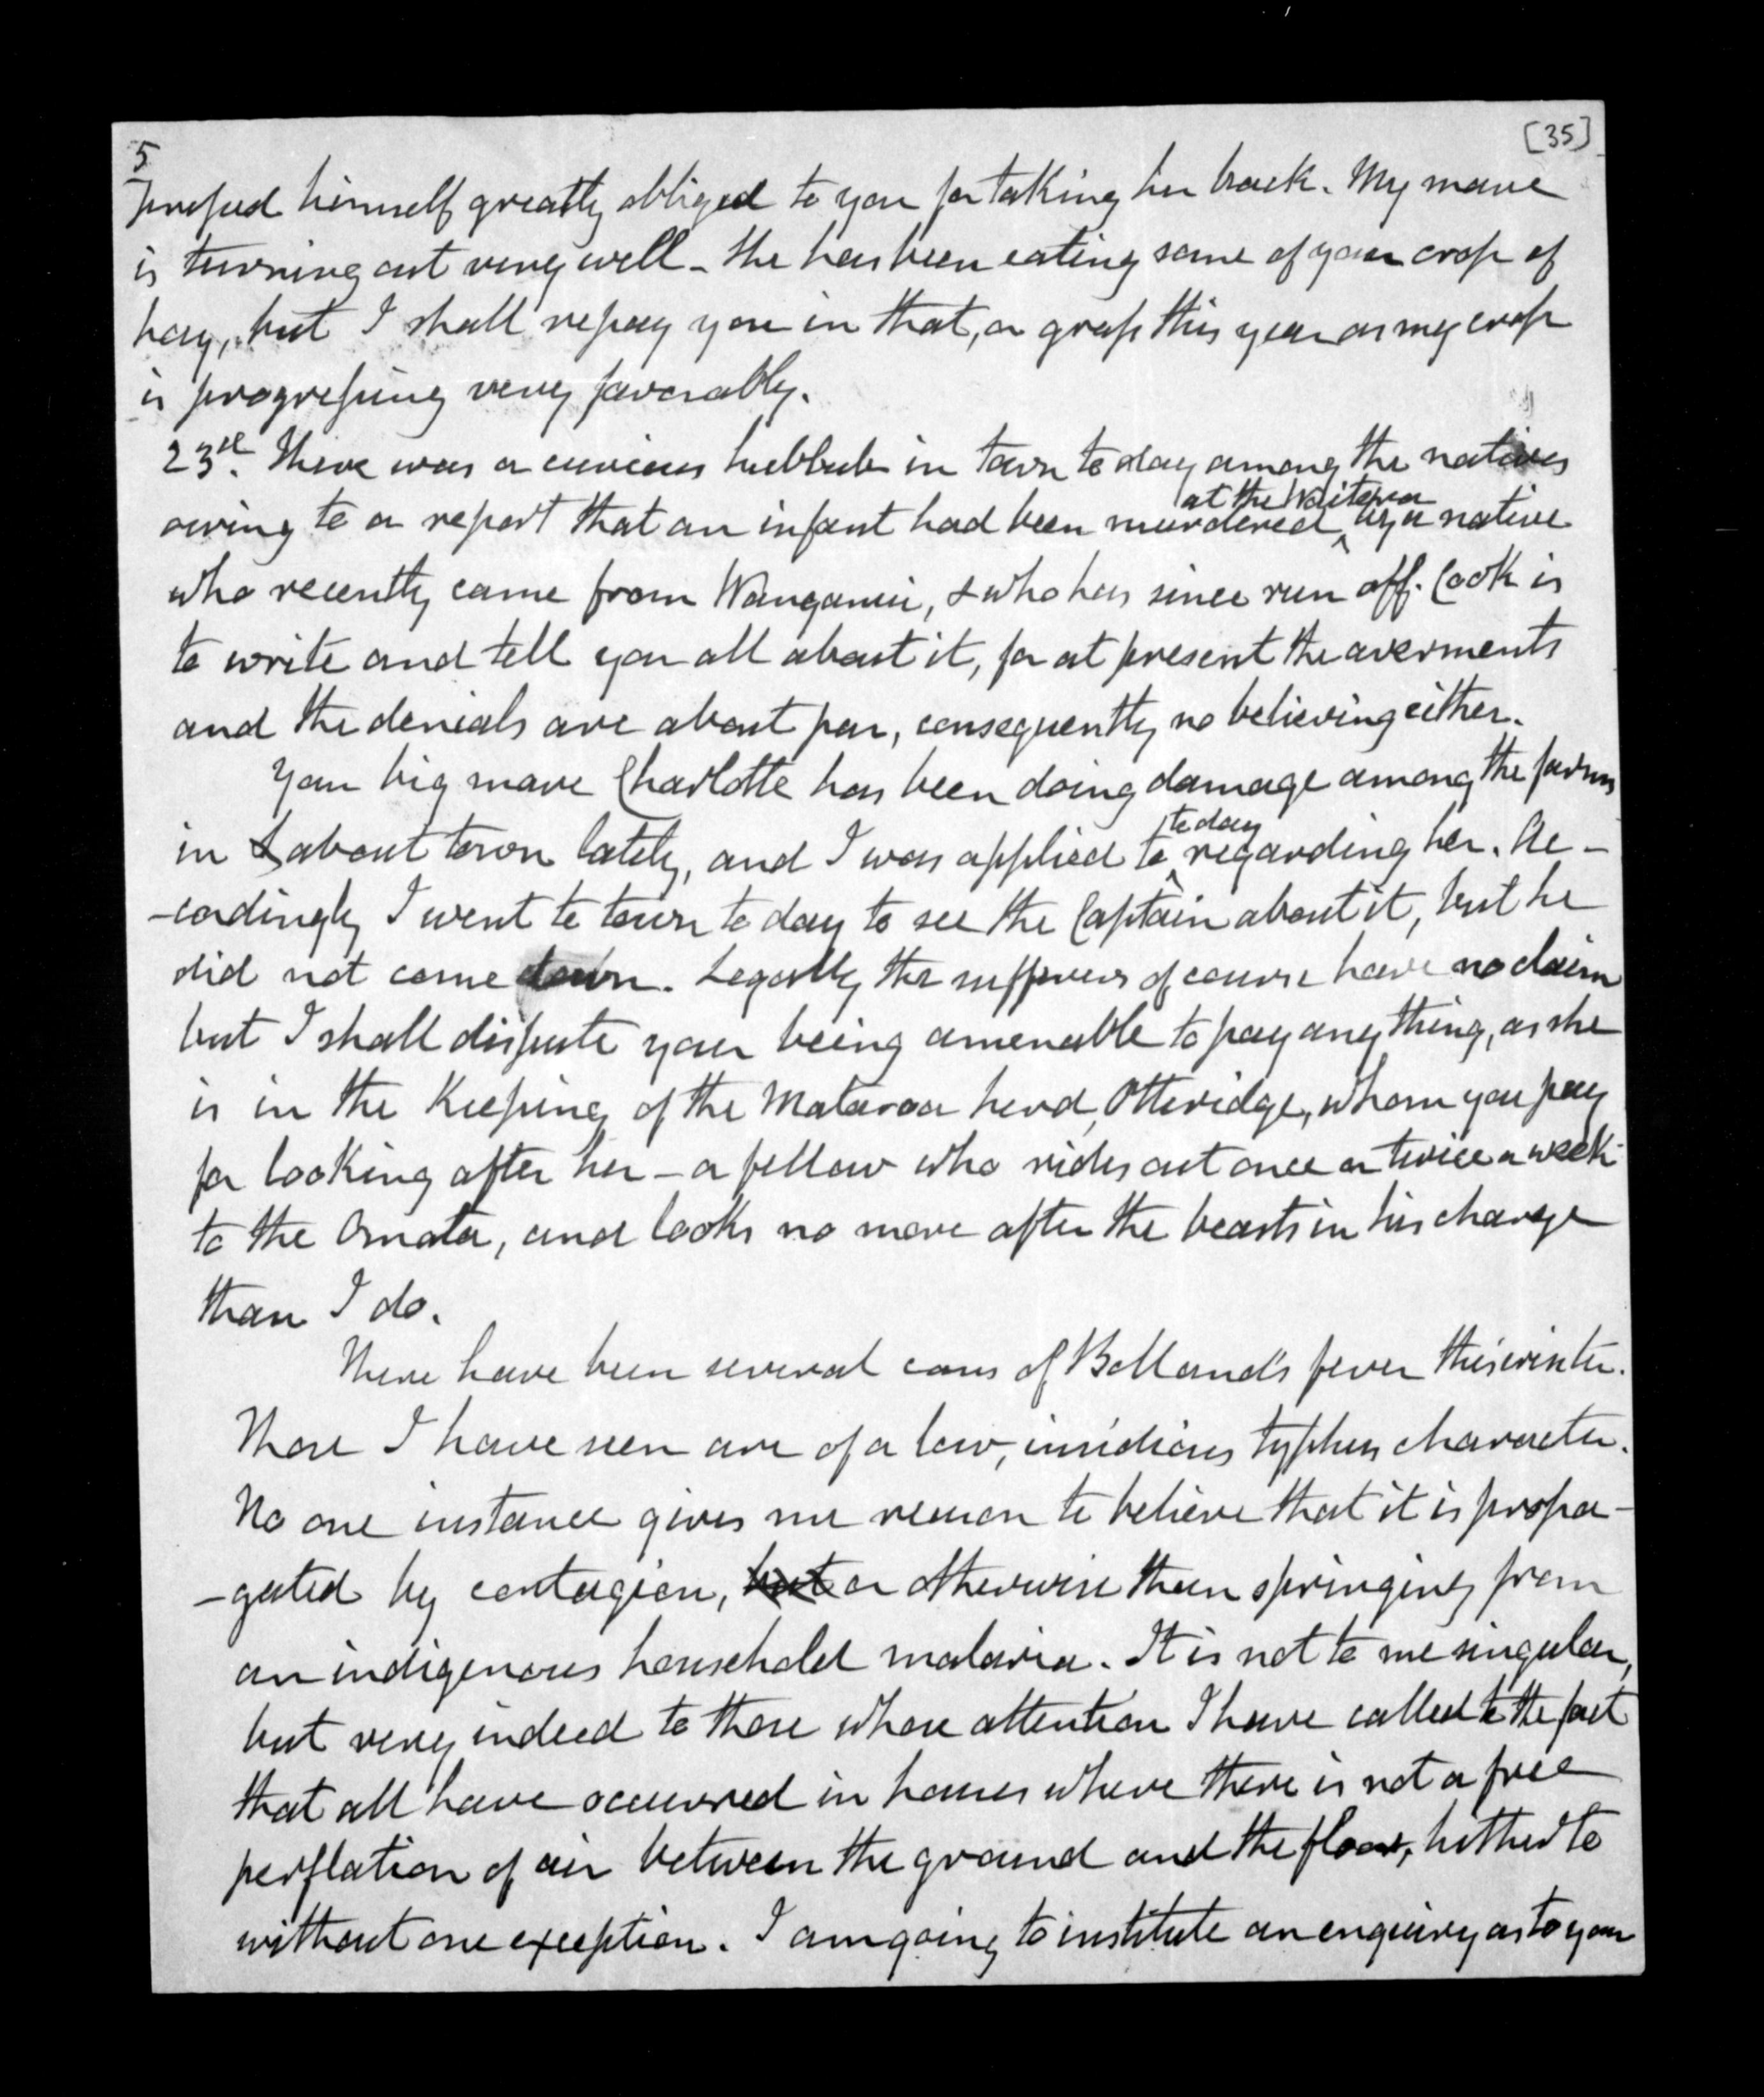 [35]
5
professed himself greatly obliged to you for taking her back. My mare
is turning out very well - She has been eating some of your crop of
hay, but I shall repay you in that, or grass this year as my crop
is progressing very favorably.
23rd. There was a curious hubbub in town to day among the natives
at the Waitera
owing to a report that an infant had been murdered ^ by a native
who recently came from Wanganui, & who has since run off. Cook is
to write and tell you all about it, for at present the averments
and the denials are about par, consequently no believing either.
Your big mare Charlotte has been doing damage among the farms
to day
in & about town lately, and I was applied to ^ regarding her. Ac-
-cordingly I went to town to day to see the Captain about it, but he
did not come down. Legally the sufferers of course have no claim
but I shall dispute your being amenable to pay any thing, as she
is in the Keeping of the Mataroa herd, Otteridge, whom you pay
for looking after her - a fellow who rides out once or twice a week
to the Omata, and looks no more after the beasts in his charge
than I do.
There have been several cases of Bolland's fever this winter.
Those I have seen are of a low, insidious typhus character.
No one instance gives me reason to believe that it is propa-
-gated by contagion, but or otherwise than springing from
an indigenous household malaria. It is not to me singular,
but very indeed to those whose attention I have called to the fact
that all have occurred in houses where there is not a free
perflation of air between the ground and the floor, hitherto
without one exception. I am going to institute an enquiry as to your